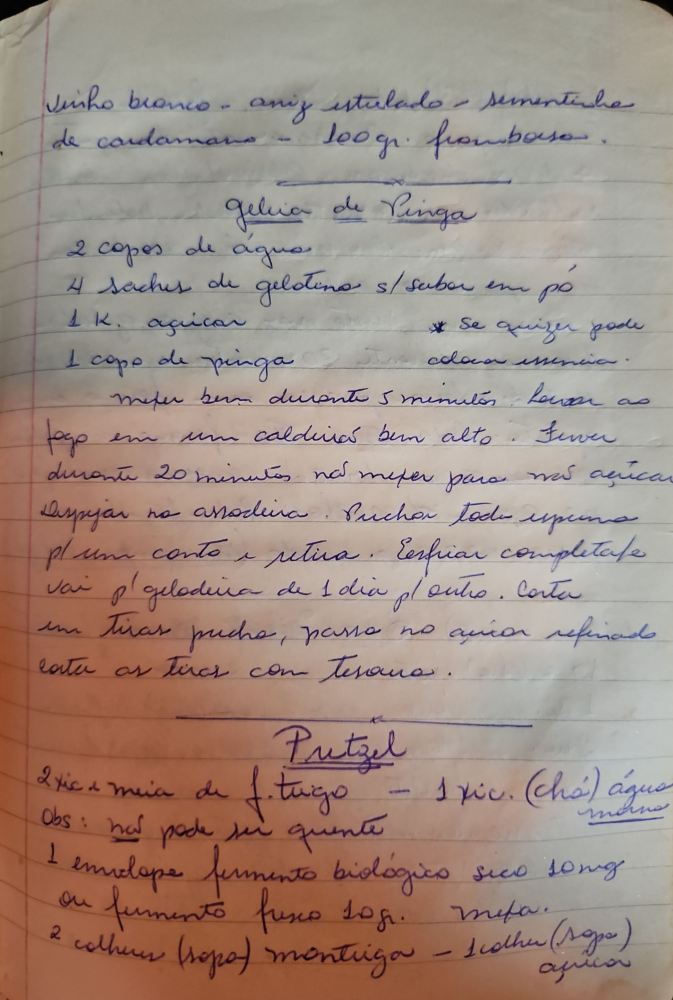 vinho branco - aniz estrelado - sementinha
de cardamano - 100gr. framboesa.
geleia de Pinga
2 copos de água
4 saches de gelatina s/ sabor em pó
1 K. açúcar * se quizer pode
1 copo de pinga coloca essencia.
mexer bem durante 5 minutos. Levar ao
fogo em um caldeirão bem alto. Ferver
durante 20 minutos não mexer para não açúcar
Despejar na assadeira. Puchar toda espuma
p/ um canto e retira. Esfriar completa/e
vai p/ geladeira de 1 dia p/ outro. Corta
em tiras pucha, passa no açúcar refinado
corta as tiras com tesoura.
Pretzel
2 xic e meia de f. trigo - 1 xic. (chá) água
morna
Obs: não pode ser quente
1 envelope fermento biológico seco 10mg
ou fermento fresco 10gr. mexa.
2 colheres (sopa) manteiga - 1 colher (sopa)
açúcar